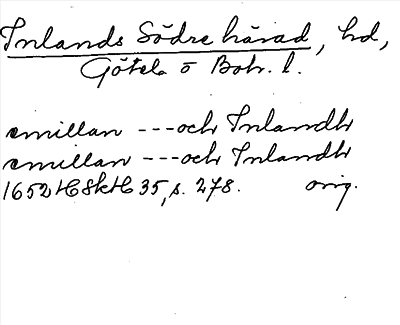 Inlands Södre härad, hd,
Göteb o Boh. l.
emillan ---och Inlandh
emillan ---och Inlandh
1652 HSkH 35, s. 278. orig.